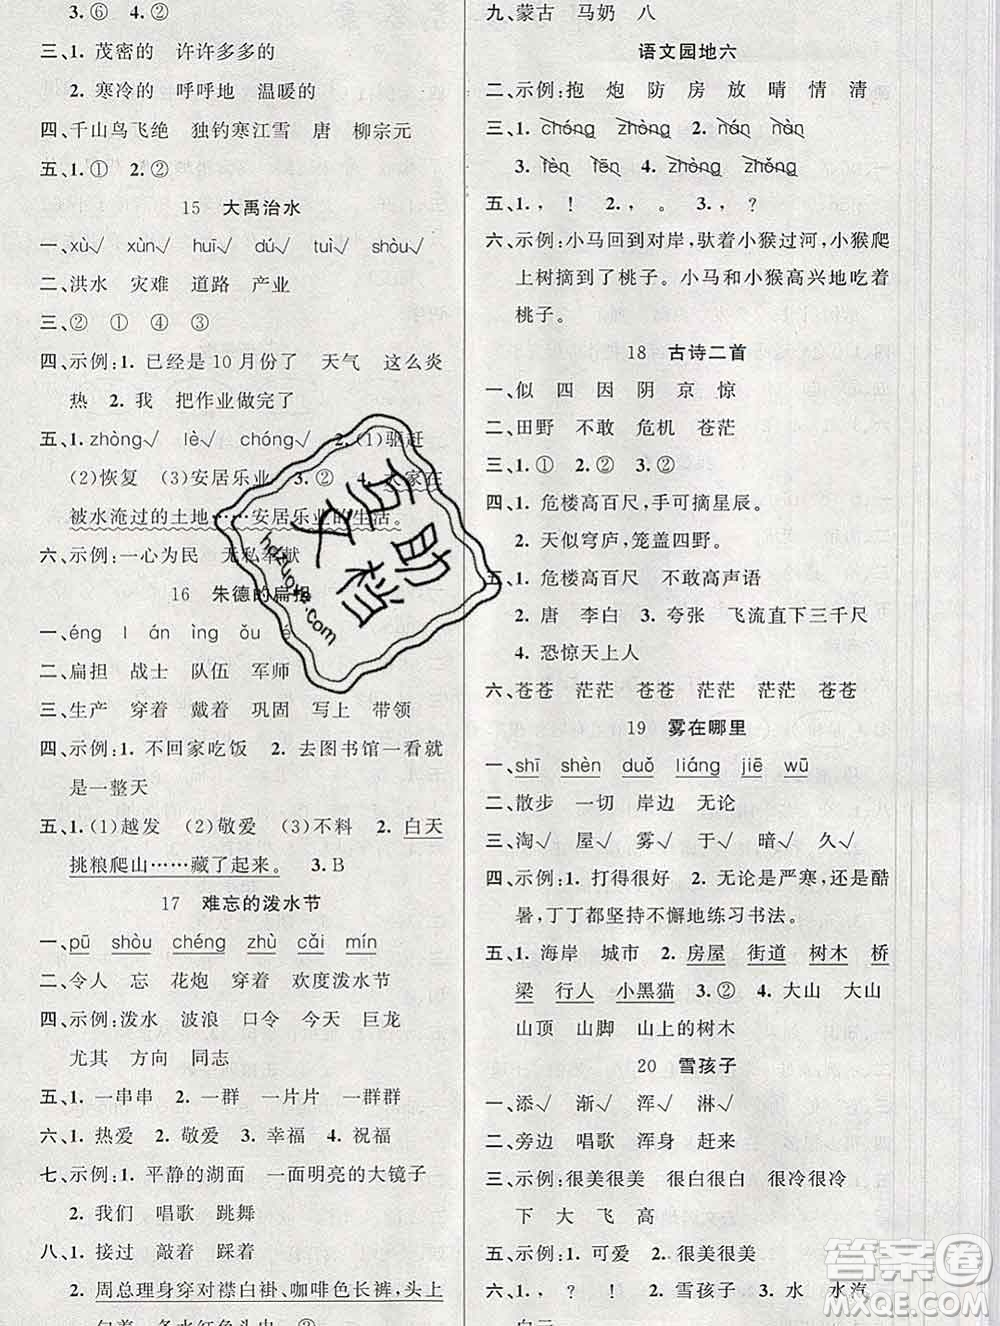 3.⑥ 4.②
三、1. 茂密的 许许多多的
2. 寒冷的 呼呼地 温暖的
四、千山鸟飞绝 独钓寒江雪 唐 柳宗元
五、1.① 2.②
15 大禹治水
一、xù√ xùn√ huī√ dú√ tuì√ shòu√
二、洪水 灾难 道路 产业
三、② ① ④ ③
四、示例:1. 已经是 10 月份了 天气 这么炎
热 2. 我 把作业做完了
五、1. zhòng√ lè√ chóng√ 2.(1)驱赶
(2)恢复 (3)安居乐业 3.② 4. 大家在
被水淹过的土地……安居乐业的生活。
六、示例:一心为民 无私奉献
16 朱德的扁担
一、éng l án ìng ǒu é
二、扁担 战士 队伍 军师
三、生产 穿着 戴着 巩固 写上 带领
四、示例:1. 不回家吃饭 2. 去图书馆一看就
是一整天
五、1.(1)越发 (2)敬爱 (3)不料 2. 白天
挑粮爬山……藏了起来。 3. B
17 难忘的泼水节
一、pō shòu chéng zhù cǎi mín
二、令人 忘 花炮 穿着 欢度泼水节
四、示例:泼水 波浪 口令 今天 巨龙
尤其 方向 同志
五、1. 一串串 2. 一群 一片片 一群群
六、1. 热爱 2. 敬爱 3. 幸福 4. 祝福
七、示例:1. 平静的湖面 一面明亮的大镜子
2. 我们 唱歌 跳舞
八、1. 接过 敲着 踩着
2. 周总理身穿对襟白褂、咖啡色长裤,头上
九、蒙古 马奶 八
语文园地六
二、示例:抱 炮 防 房 放 晴 情 清
三、1. chóng zhòng 2. nán nàn
3. lèn tēn 4. zhòng zhǒng
五、1. , ! 2. , 。 3. , ?
六、示例:小马回到对岸,驮着小猴过河,小猴爬
上树摘到了桃子。小马和小猴高兴地吃着
桃子。
18 古诗二首
一、似 四 因 阴 京 惊
二、田野 不敢 危机 苍茫
三、1.① 2.② 3.②
四、1. 危楼高百尺,手可摘星辰。
2. 天似穹庐,笼盖四野。
五、示例:1. 危楼高百尺 不敢高声语
2. 唐 李白 3. 夸张 飞流直下三千尺
4. 恐惊天上人
六、苍苍 茫茫 苍苍 茫茫 茫茫 苍苍
19 雾在哪里
一、shī shèn duǒ liáng jiē wū
二、散步 一切 岸边 无论
三、淘√ 屋√ 雾√ 于√ 暗√ 久√
四、示例:1. 打得很好 2. 无论是严寒,还是酷
暑,丁丁都坚持不懈地练习书法。
五、1. 海岸 城市 2. 房屋 街道 树木 桥
梁 行人 小黑猫 3.② 4. 大山 大山
山顶 山脚 山上的树木
20 雪孩子
一、添√ 渐√ 浑√ 淋√
二、旁边 唱歌 浑身 赶来
三、示例:很美很美 很白很白 很冷很冷
下 大 飞 高
五、示例:1. 可爱 2. 很美很美
六、1. , ! ! 2. 雪孩子 3. 水 水汽
互助文档
hdzuoye.com
答案圈
MXQE.COM